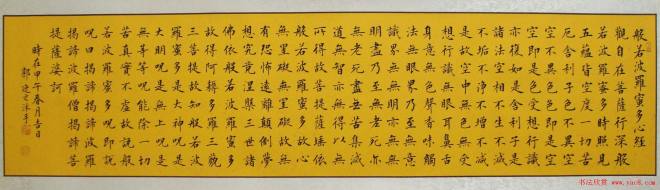 般若波羅蜜多心經
觀自在菩薩行深般
若波羅蜜多時照見
五蘊皆空度一切苦
厄舍利子色不異空
空不異色色即是空
空即是色受想行識
亦復如是舍利子是
諸法空相不生不滅
不垢不淨不增不減
是故空中無色無受
想行識無眼耳鼻舌
身意無色聲香味觸
法無眼界乃至無意
識界無無明亦無無
明盡乃至無老死亦
無老死盡無苦集滅
道無智亦無得以無
所得故菩提薩埵依
般若波羅蜜多故心
無罣礙無罣礙故無
有恐怖遠離顛倒夢
想究竟涅槃三世諸
佛依般若波羅蜜多
故得阿耨多羅三藐
三菩提故知般若波
羅蜜多是大神呪是
大明呪是無上呪是
無等等呪能除一切
苦真實不虛故說般
若波羅蜜多呪即說
呪曰揭諦揭諦波羅
揭諦波羅僧揭諦菩
提薩婆訶
時在甲午春月吉日
书法欣赏
www.yac8.com